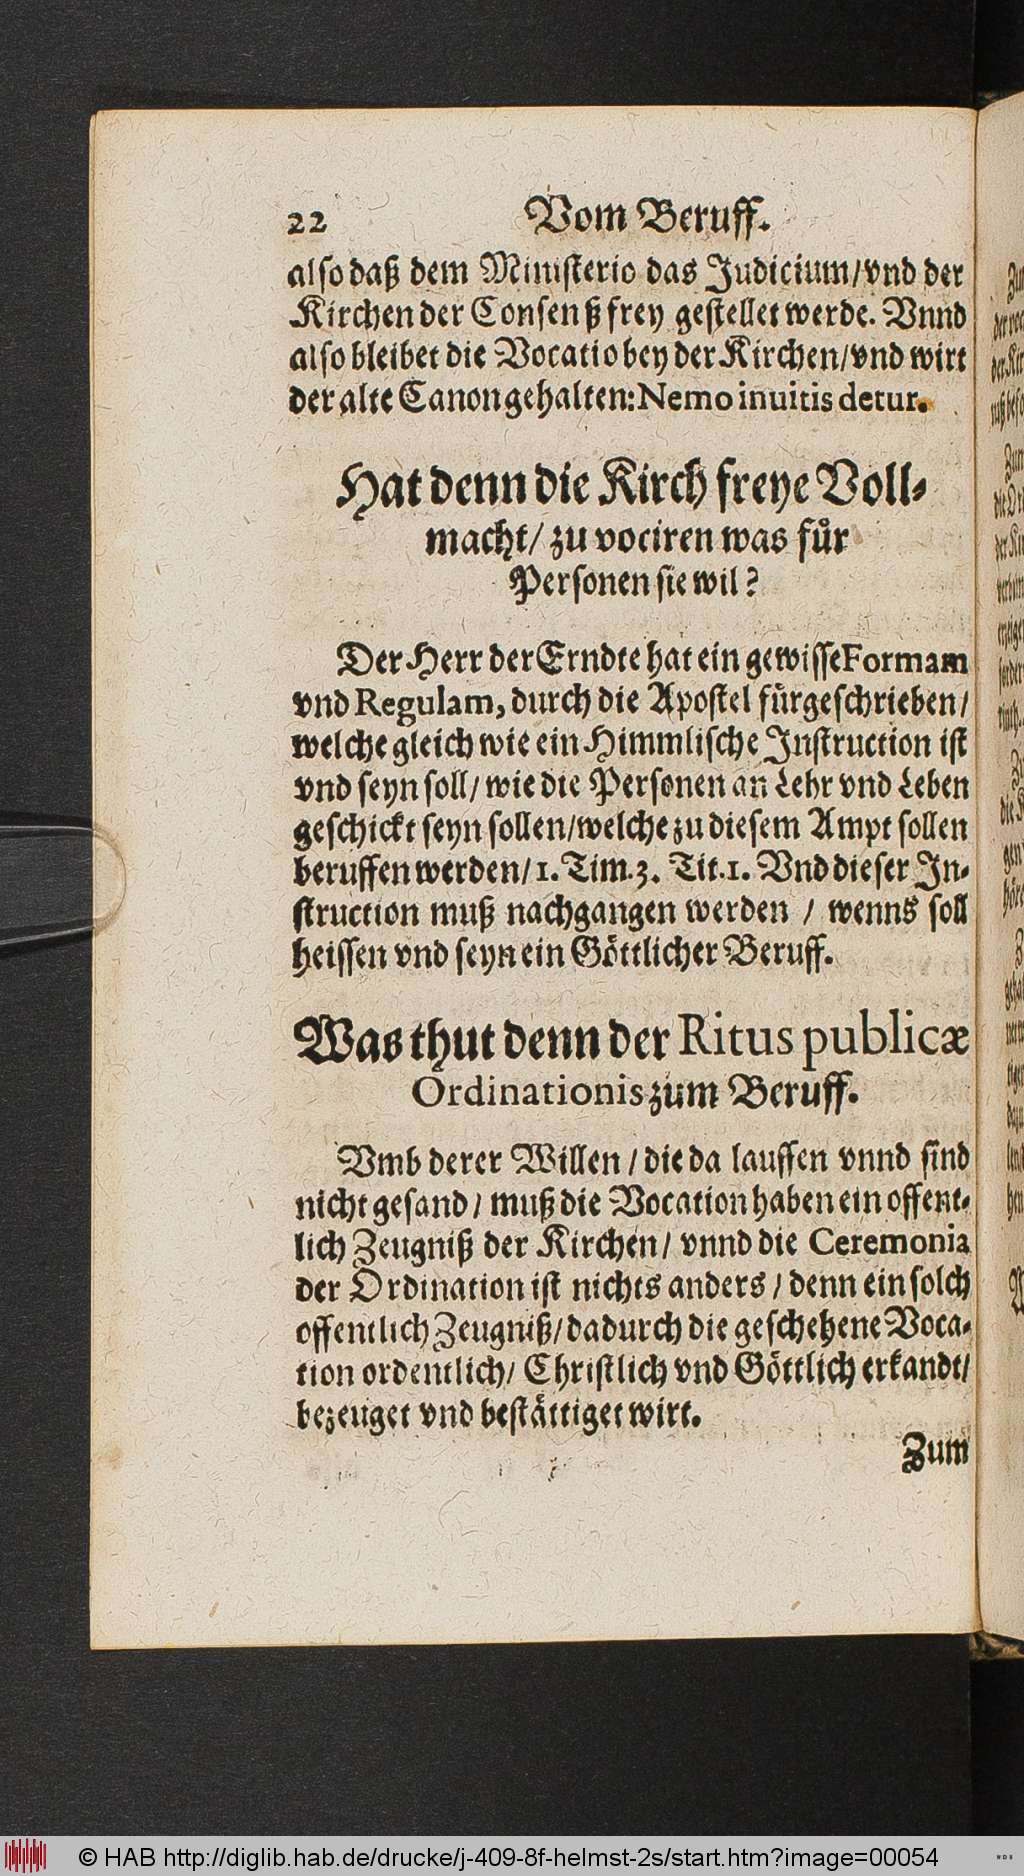 22 Vom Beruff.
also daß dem Ministerio das Judicium/vnd der
Kirchen der Consenß frey gestellet werde. Vnnd
also bleibet die Vocatio bey der Kirchen/vnd wirt
der alte Canon gehalten: Nemo inuitis detur.
Hat denn die Kirch freye Voll-
macht/ zu vociren was für
Personen sie wil?
Der Herr der Erndte hat ein gewisse Formam
vnd Regulam, durch die Apostel fürgeschrieben/
welche gleich wie ein Himmlische Instruction ist
vnd seyn soll/ wie die Personen an Lehr vnd Leben
geschickt seyn sollen/welche zu diesem Ampt sollen
beruffen werden/ 1. Tim. 3. Tit. 1. Vnd dieser In-
struction muß nachgangen werden / wenns soll
heissen vnd seyn ein Göttlicher Beruff.
Was thut denn der Ritus publicæ
Ordinationis zum Beruff.
Vmb derer Willen / die da lauffen vnnd sind
nicht gesand / muß die Vocation haben ein offent-
lich Zeugniß der Kirchen/ vnnd die Ceremonia
der Ordination ist nichts anders / denn ein solch
offentlich Zeugniß/dadurch die geschehene Voca-
tion ordentlich/ Christlich vnd Göttlich erkandt/
bezeuget vnd bestättiget wirt.
Zum
© HAB http://diglib.hab.de/drucke/j-409-8f-helmst-2s/start.htm?image=00054